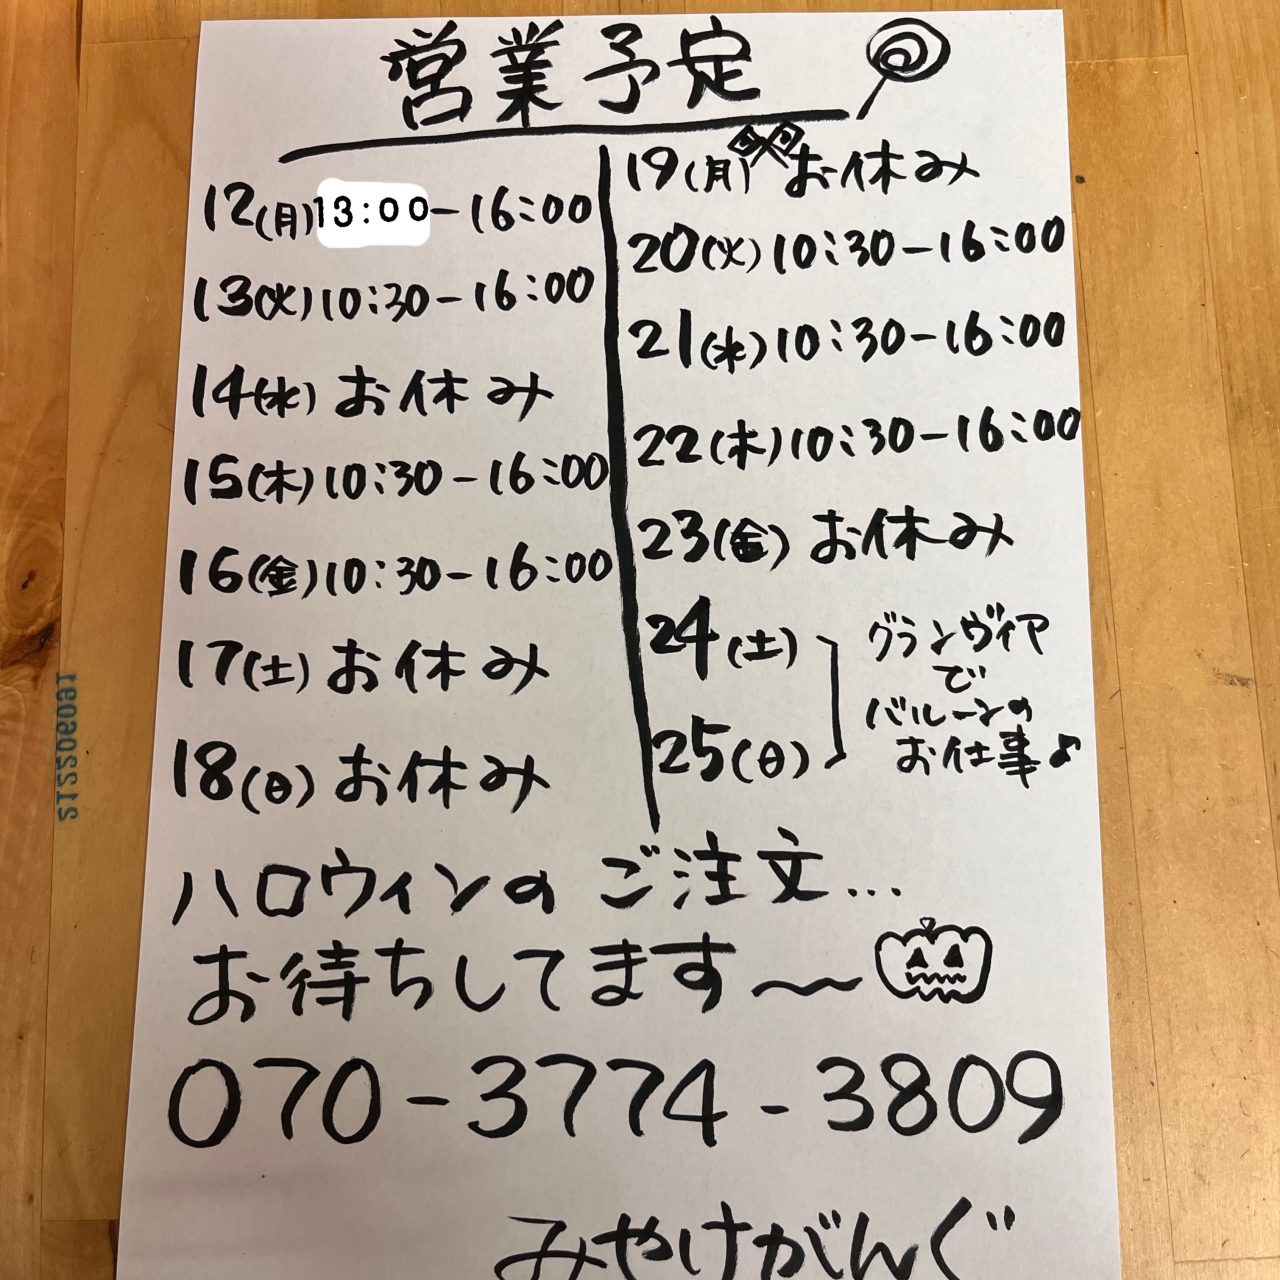 営業予定
12(月)13:00-16:00
13(火)10:30-16:00
14(水)お休み
15(木)10:30-16:00
16(金)10:30-16:00
17(土)お休み
18(日)お休み
19(月)お休み
20(火)10:30-16:00
21(水)10:30-16:00
22(木)10:30-16:00
23(金)お休み
24(土)
25(日)
グランヴィア
で
バルーンの
お仕事♪
ハロウィンのご注文...
お待ちしてます〜
070-3774-3809
みやけがんぐ
212206091